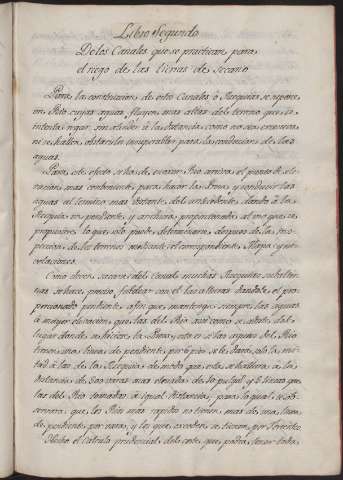 Libro Segundo
De los Canales que se practican para
el riego de las tierras de secano
Para la construccion de estos Canales ó Azequias se supone
un Rio cuyas aguas fluyen mas altas del terreno que in-
tenta regar, sin atender á la distancia, como no sea excesiva
ni se halle obstaculo insuperable para la conduccion de las
aguas.
Para este efecto se ha de buscar Rio arriva, el punto de ele-
vacion mas conveniente para hacer la Presa, y conducir las
aguas al termino mas distante del antecedente, dando á la
Azequia su pendiente, y anchura proporcionada al uso que se
proponen; lo que solo puede determinarse, despues de la ins-
peccion de los terrenos mediante el correspondiente Mapa y ni-
velaciones.
Como deven sacarse del Canal muchas Azequias subalter-
nas se hace preciso faldear con el las alturas dandole el pro-
porcionado pendiente, afin que mantenga siempre las aguas
á mayor elevacion, que las del Rio aun como se aparte del
lugar donde se hiciere la Presa; esto es si las aguas del Rio
tienen una linea de pendiente por 6 pies se le dara solo la mi-
tad á las de la Azequia de modo que esta se hallara á la
distancia de varas mas elevada de pulg. y lineas que
las del Rio tomadas á igual distancia; para lo qual se ob-
servara, que los Rios mas rapidos no tienen mas de una linea
de pendiente por vara, y los que exceden se tienen por Torrentes
Hecho el calculo prudencial del coste, que podra tener toda